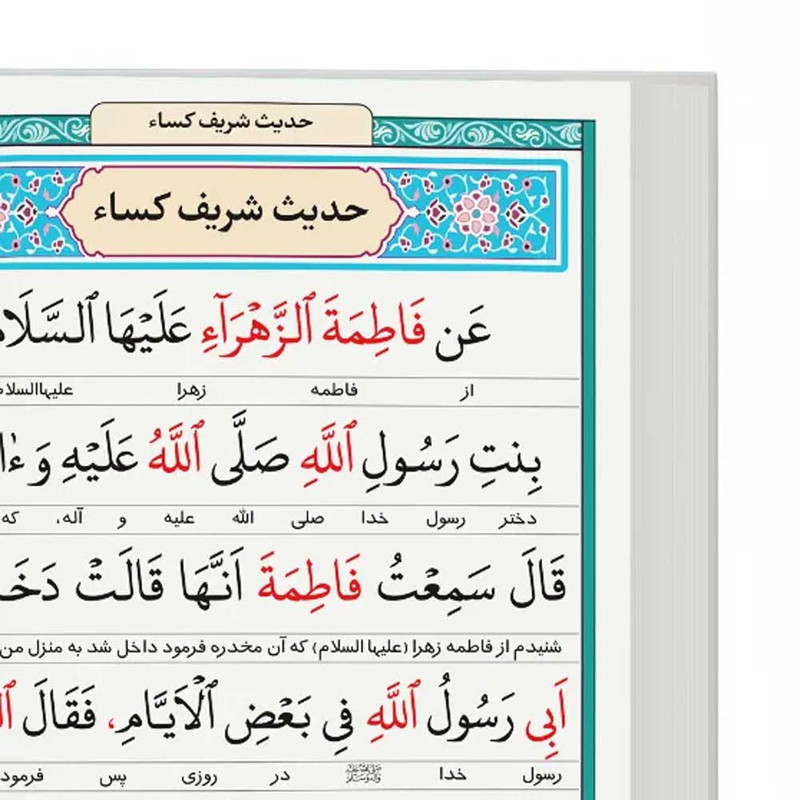 حدیث شریف کساء
حدیث شریف کساء
عَن فَاطِمَةَ ٱلزَّهْرَآءِ عَلَيْهَا
از فاطمه زهرا علیهاالسلام
بِنتِ رَسُولِ ٱللَّهِ صَلَّى ٱللَّهُ عَلَيْهِ وَ
دختر رسول خدا صلی الله علیه و آله، که
قَالَ سَمِعْتُ فَاطِمَةَ اَنَّهَا قَالَتْ
شنیدم از فاطمه زهرا (علیها السلام) که آن مخدره فرمود داخل شد به منزل من
اَبِی رَسُولُ ٱللَّهِ فِی بَعْضِ ٱلْاَیَّامِ، فَقَالَ
رسول خدا ﷺ در روزی پس فرمود